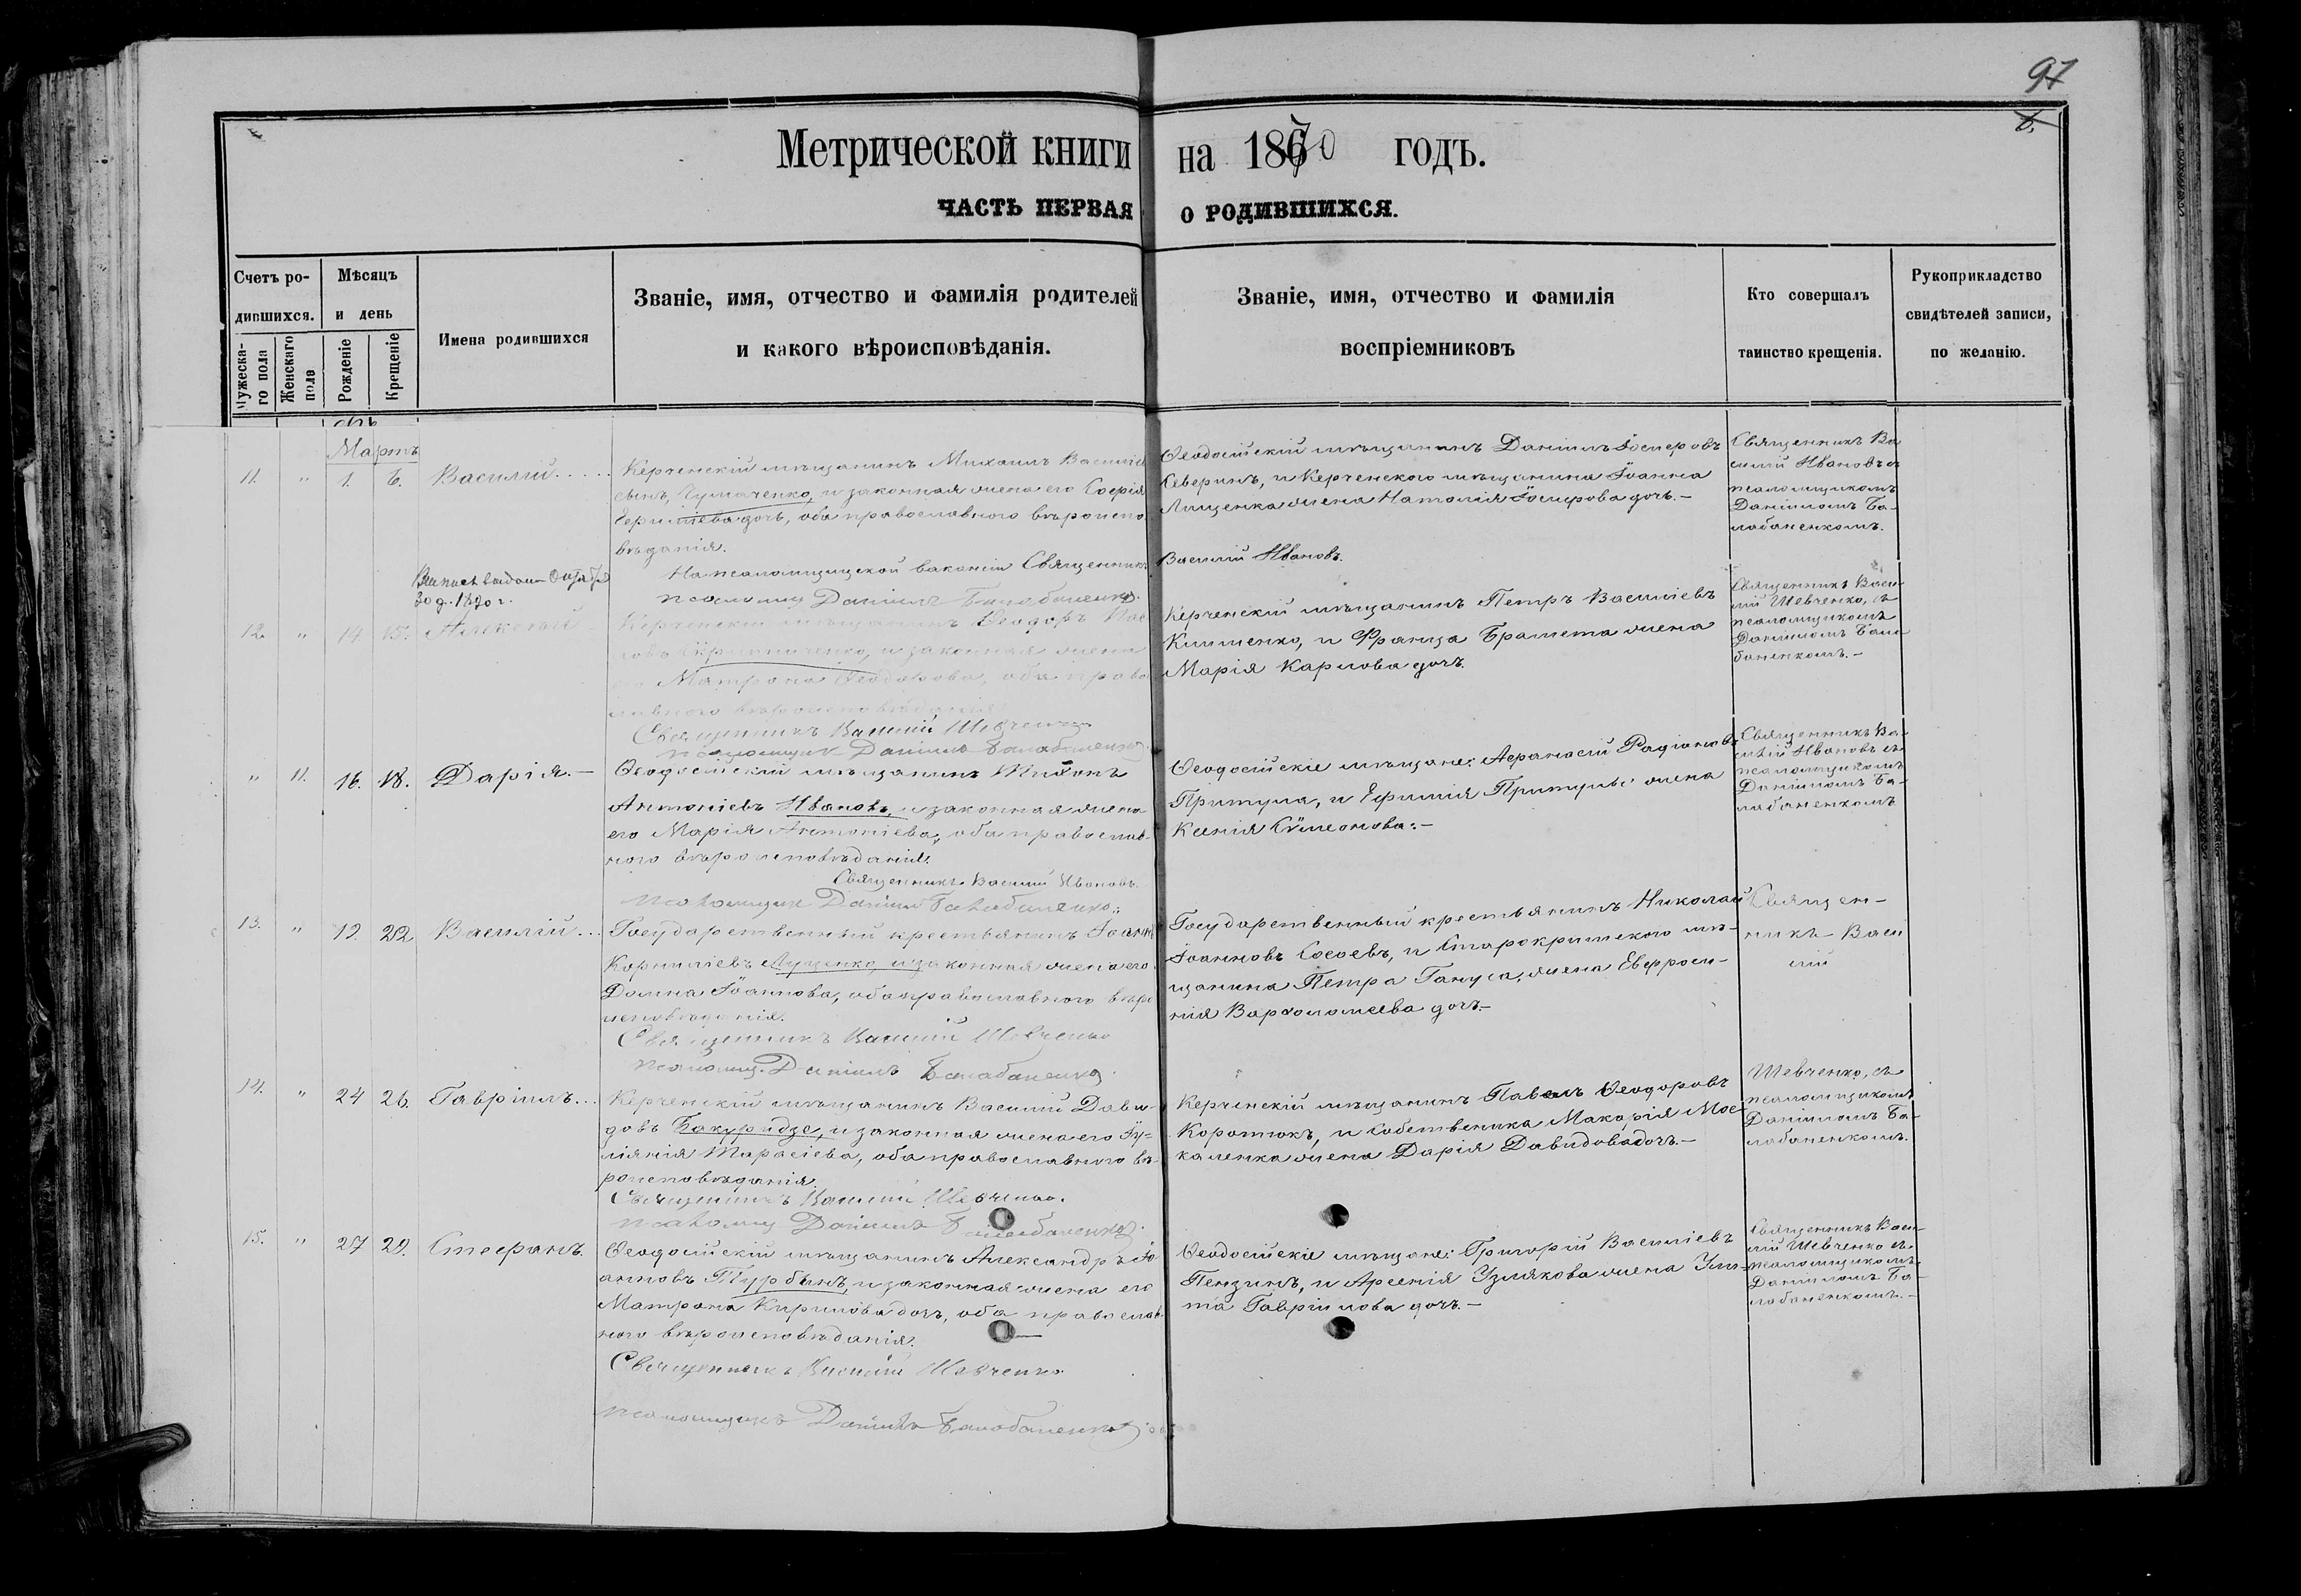 97
6.
Метрической книги на 1870 годъ.
ЧАСТЬ ПЕРВАЯ О РОДИВШИХСЯ.
Счетъ родившихся.
Мужеска-
го пола
Женскаго
пола
Мѣсяцъ
и день
Рожденіе
Крещеніе
Имена родившихся
Званіе, имя, отчество и фамилія родителей
и какого вѣроисповѣданія.
Званіе, имя, отчество и фамилія
воспріемниковъ
Кто совершалъ
таинство крещенія.
Рукоприкладство
свидѣтелей записи,
по желанію.
Мартъ
11. " 1. 6. Василій
Керченскій мѣщанинъ Михаилъ Василіевъ
сынъ, Чумаченко, и законная жена его Софія
дочь, оба православного вѣроиспо-
вѣданія.
На псаломщицкой ваканціи Священникъ Василій Ивановъ.
псаломщ Даніилъ Балабаненко.
Ѳеодосійскій мѣщанинъ Даніилъ Іосифовъ
Северинъ, и Керченского мѣщанина Іоанна
Лищенка жена Наталія Іосифова дочь.-
Священникъ Ва
силій Ивановъ съ
псаломщикомъ
Даніиломъ Ба-
лабаненкомъ.
30 д. 1870 г.
12. " 14 15. Алексѣй
Керченскій мѣщанинъ Ѳеодоръ
и законная жена
его Матрона Ѳеодорова, оба право
славного вѣроисповѣданія
Священникъ Василій Шевченко
псаломщик Даніилъ Балабаненко.
Керченскій мѣщанинъ Петръ Василіевъ
Клименко, и Франца Брамета жена
Марія Карлова дочь.
Священникъ Васи-
лій Шевченко, съ
псаломщикомъ
Даніиломъ Бала-
баненкомъ.-
" 11. 16. 18. Дарія.-
Ѳеодосійскій мѣщанинъ Тихонъ
Антоніевъ Ивановъ, и законная жена
его Марія Антоніева, оба православ-
ного вѣроисповѣданія.
Священникъ Василій Ивановъ.
псаломщик Даніилъ Балабаненко.
Ѳеодосійскіе мѣщане: Афанасій Радіоновъ
Притула, и Ефимія Притулы жена
Ксенія Сѵмеонова.-
Священникъ Ва-
силій Ивановъ съ
псаломщикомъ
Даніиломъ Ба-
лабаненкомъ
13. " 19. 22. Василій...
Государственный крестьянинъ Іоаннъ
Корниліевъ Луценко, и законная жена его
Домна Іоаннова, оба православного вѣро
исповѣданія.
Священникъ Василій Шевченко
псаломщ. Даніилъ Балабаненко.
Государственный крестьянинъ Николай
Іоанновъ Сосоевъ, и Старокримского мѣ-
щанина Петра Гануса, жена Евфроси-
нія Варѳоломеева дочь.-
Священ-
никъ Васи
лій
14. " 24 26. Гавріилъ...
Керченскій мѣщанинъ Василій Дави-
довъ Бакуридзе, и законная жена его Іу-
ліянія Тарасіева, оба православного вѣ-
роисповѣданія.
Священникъ Василій Шевченко.
псаломщ Даніилъ Балабаненко.
Керченскій мѣщанинъ Павелъ Ѳеодоровъ
Коротокъ, и собственика Макарія Мос-
каленка жена Дарія Давидова дочь.-
Шевченко, съ
псаломщикомъ
Даніиломъ Ба-
лабаненкомъ.
15. " 27 29. Стефанъ.
Ѳеодосійскій мѣщанинъ Александръ Іо
анновъ Турбинъ, и законная жена его
Матрона Кирилова дочь, оба православ-
ного вѣроисповѣданія.
Священникъ Василій Шевченко
псаломщикъ Даніилъ Балабаненко
Ѳеодосійскіе мѣщане: Григорій Василіевъ
Пензинъ, и Арсенія Узлякова жена Ули-
та Гавріилова дочь.-
Священникъ Васи-
лій Шевченко съ
псаломщикомъ
Даніиломъ Ба-
лабаненкомъ.-